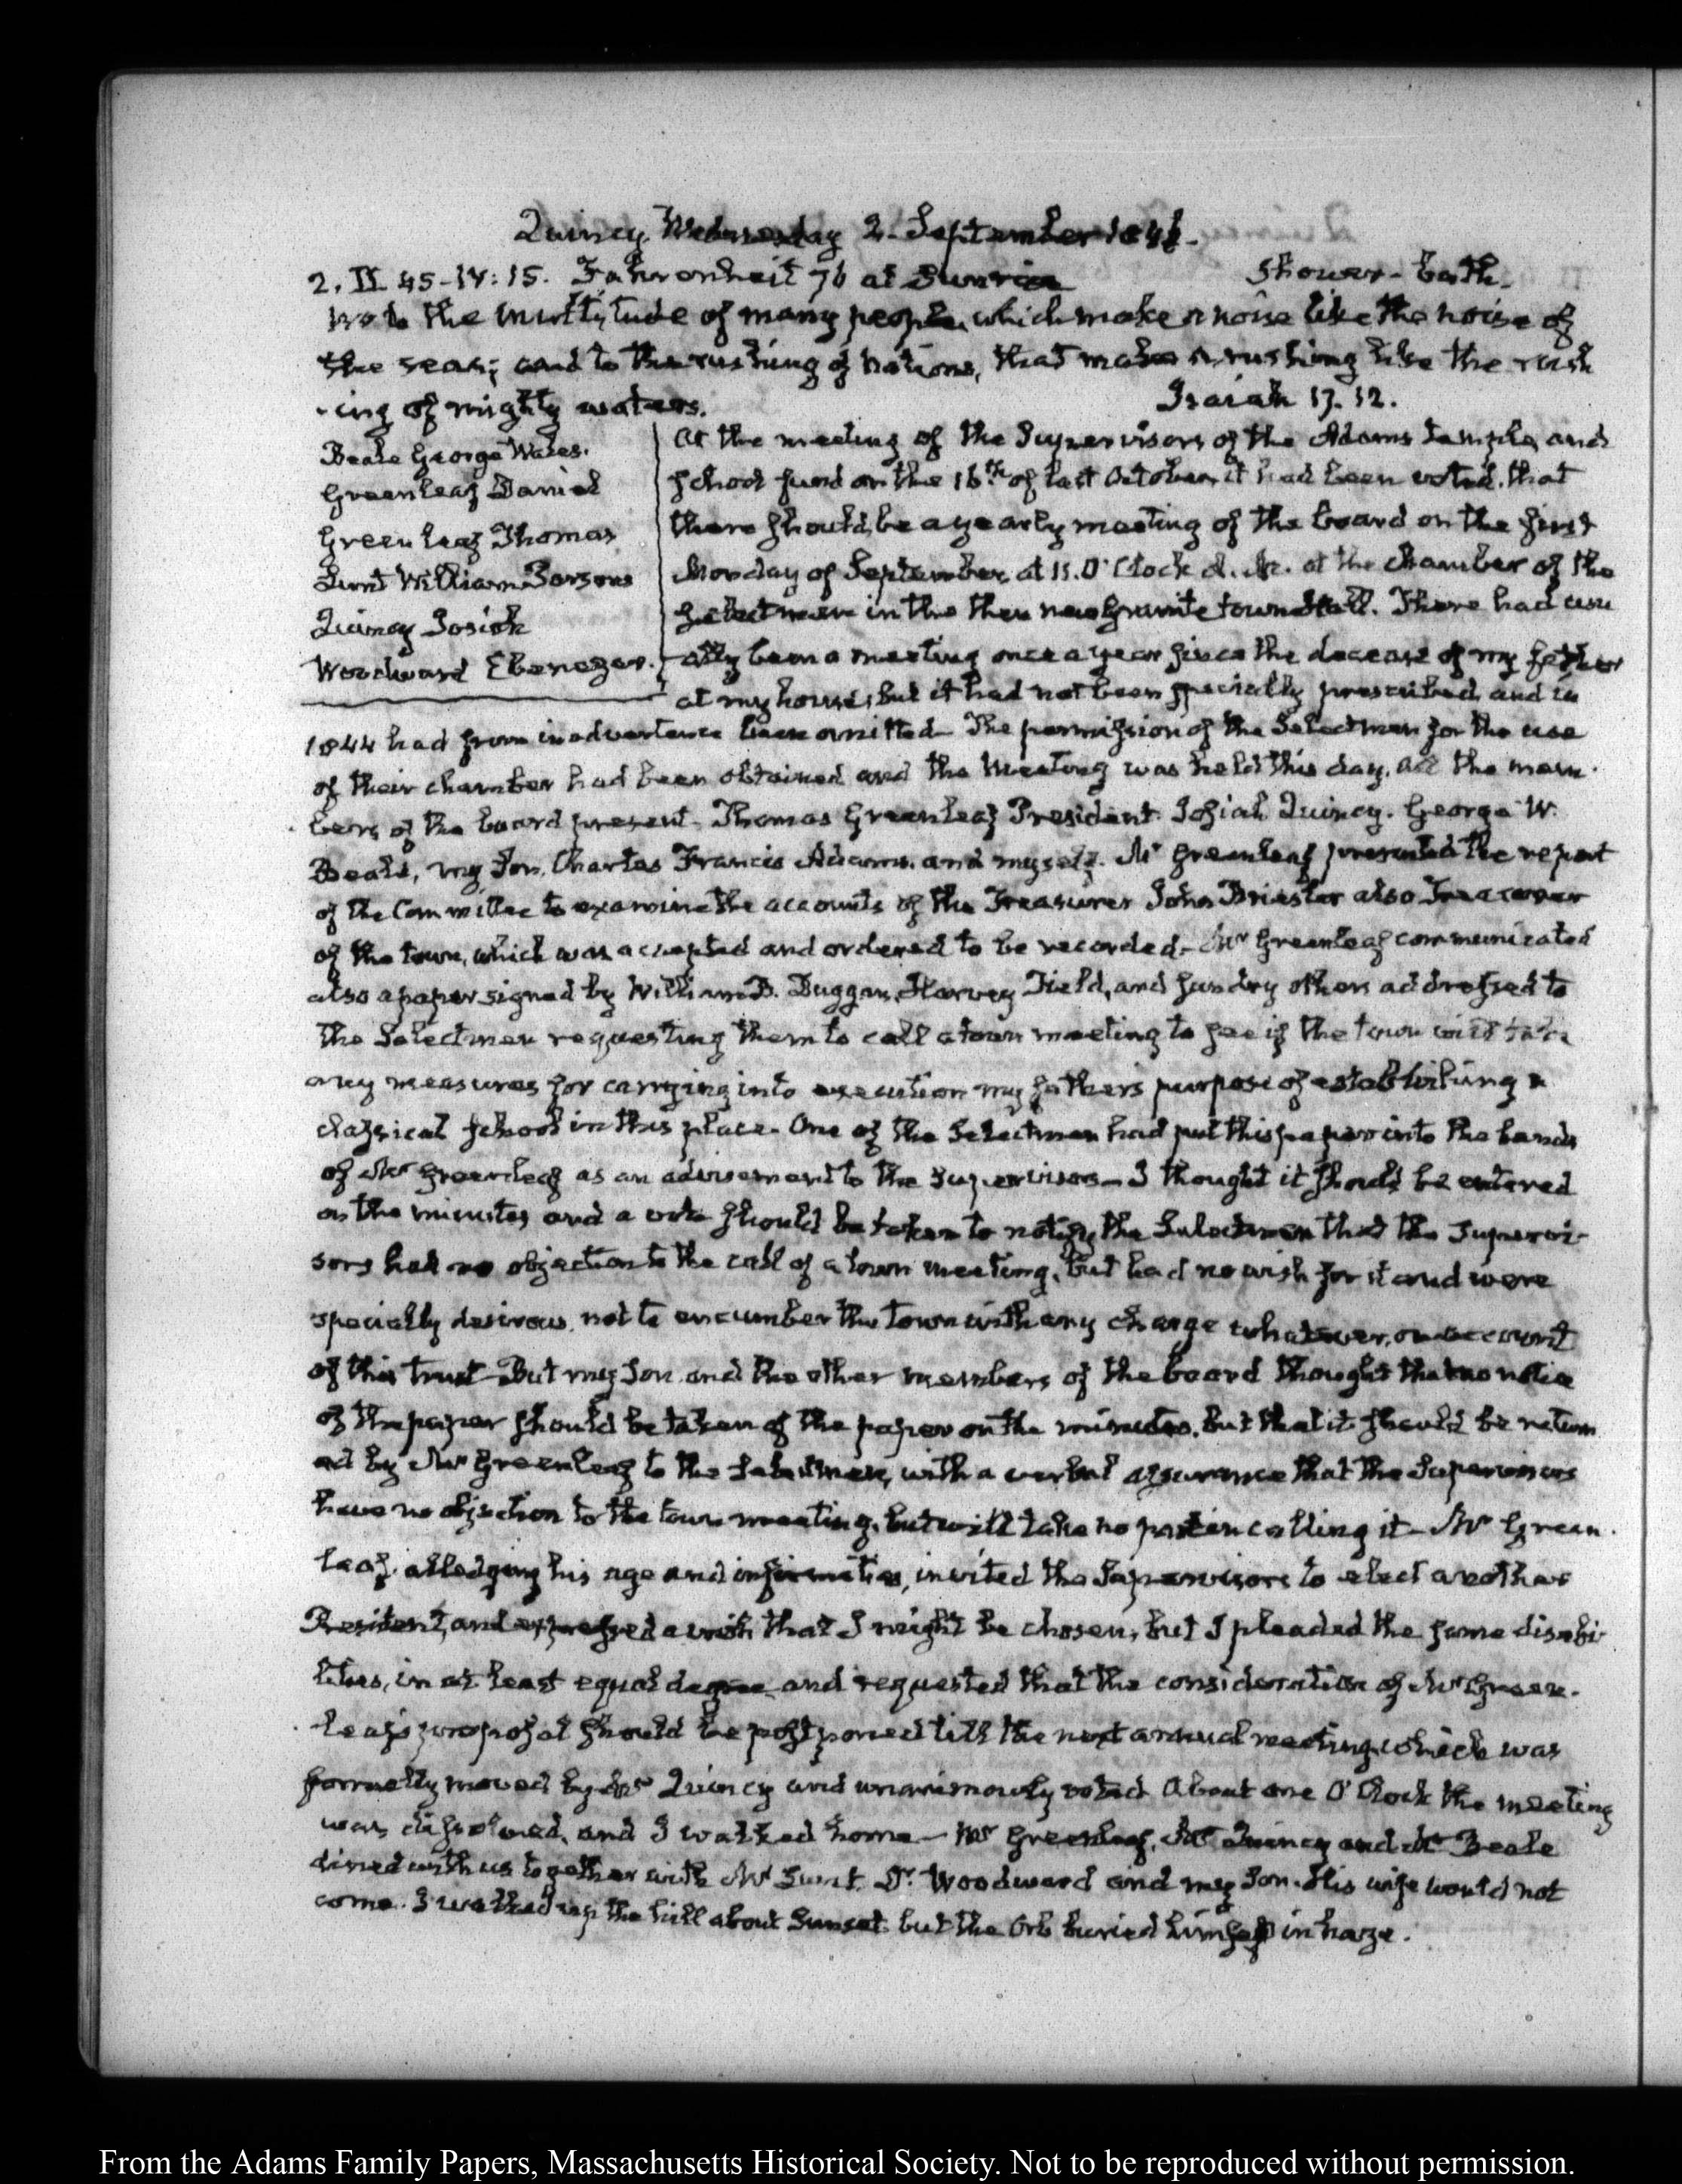 Quincy Wednesday 2. September 1846.
2. IV. 45-IV:15. Fahrenheit 76 at Sunrise Shower-bath.
Wo to the multitude of many people, which make a noise like the noise of
the seas; and to the rushing of nations, that make a rushing like the rush
-ing of mighty waters. Isaiah 17. 12.
Beale George Wales.
Greenleaf Daniel
Greenleaf Thomas
Lunt William Parsons
Quincy Josiah
Woodward Ebenezer.
At the meeting of the Supervisors of the Adams temple, and
school fund on the 16th of last October, it had been voted, that
there should be a yearly meeting of the board on the first
Monday of September, at 11. O'Clock A.M. at the chamber of the
Selectmen in the then new Granite town Hall. There had usu
-ally been a meeting once a year since the decease of my father
at my house, but it had not been specially prescribed, and in
1844 had from inadvertence been omitted- The permission of the Selectmen for the use
of their chamber had been obtained and the Meeting was held this day, all the mem-
bers of the board present- Thomas Greenleaf President- Josiah Quincy. George W.
Beale, my Son, Charles Francis Adams, and myself. Mr Greenleaf presented the report
of the Committee to examine the accounts of the Treasurer John Briesler also Treasurer
of the town, which was accepted and ordered to be recorded- Mr Greenleaf communicated
also a paper signed by William B. Duggan, Harvey Field, and sundry others addressed to
the Selectmen requesting them to call a town meeting to see if the town will take
any measures for carrying into execution my father's purpose of establishing a
classical school in this place- One of the Selectmen had put this paper into the hands
of Mr Greenleaf as an advisement to the Supervisors- I thought it should be entered
on the minutes and a vote should be taken to notify the Selectmen that the Supervi-
sors had no objection to the call of a town meeting, but had no wish for it and were
specially desirous not to encumber the town with any charge whatever, on account
of this trust- But my Son and the other members of the board thought that no notice
of the paper should be taken of the paper on the minutes, but that it should be return
ed by Mr Greenleaf to the Selectmen, with a verbal assurance that the Supervisors
have no objection to the town meeting, but will take no part in calling it- Mr Green-
leaf, alledging his age and infirmities, invited the Supervisors to elect another
President, and expressed a wish that I might be chosen, but I pleaded the same disabi-
lities, in at least equal degree, and requested that the consideration of Mr Green-
leaf's proposal should be postponed till the next annual meeting, which was
formally moved by Mr Quincy and unanimously voted. About one O'Clock the meeting
was dissolved, and I walked home- Mr Greenleaf, Mr Quincy and Mr Beale
dined with us together with Mr Lunt, Dr. Woodward and my Son. His wife would not
come. I walked up the hill about Sunset but the Orb buried himself in haze.
From the Adams Family Papers, Massachusetts Historical Society. Not to be reproduced without permission.